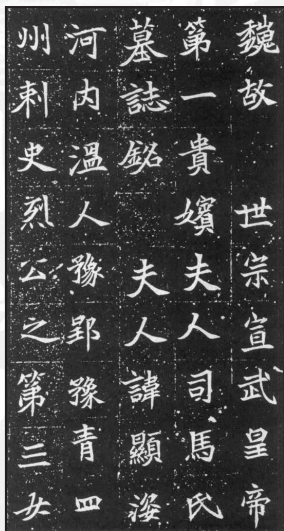 魏故　世宗宣武皇帝
第一貴嬪夫人司馬氏
墓誌銘　夫人諱顯姿
河內溫人豫郢豫青四
州刺史烈公之第三女